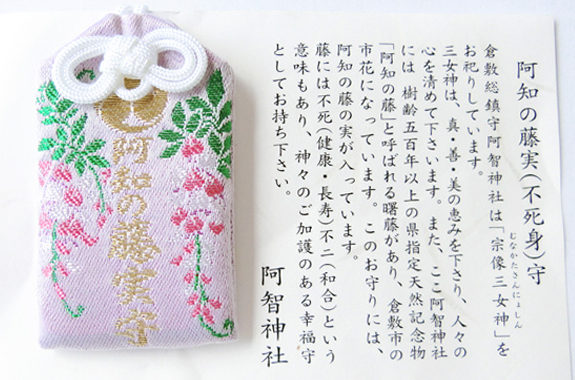 阿知の藤実守
阿知の藤実(不死身)守
倉敷総鎮守阿智神社は「宗像三女神」を
むなかたさんにょしん
お祀りしています。
三女神は、真・善・美の恵みを下さり、人々の
心を清めて下さいます。また、ここ阿智神社
には 樹齢五百年以上の県指定天然記念物
「阿知の藤」と呼ばれる曙藤があり、倉敷市の
市花になっています。このお守りには、
阿知の藤の実が入っています。
藤には不死(健康・長寿)不二(和合)という
意味もあり、神々のご加護のある幸福守
としてお持ち下さい。
阿智神社